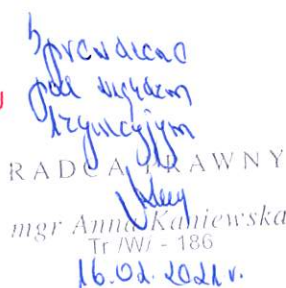 Sprawdzono
pod względem
RADCA PRAWNY
mgr Anna Kaniewska
Tr /W/ - 186
16.02.2021 r.